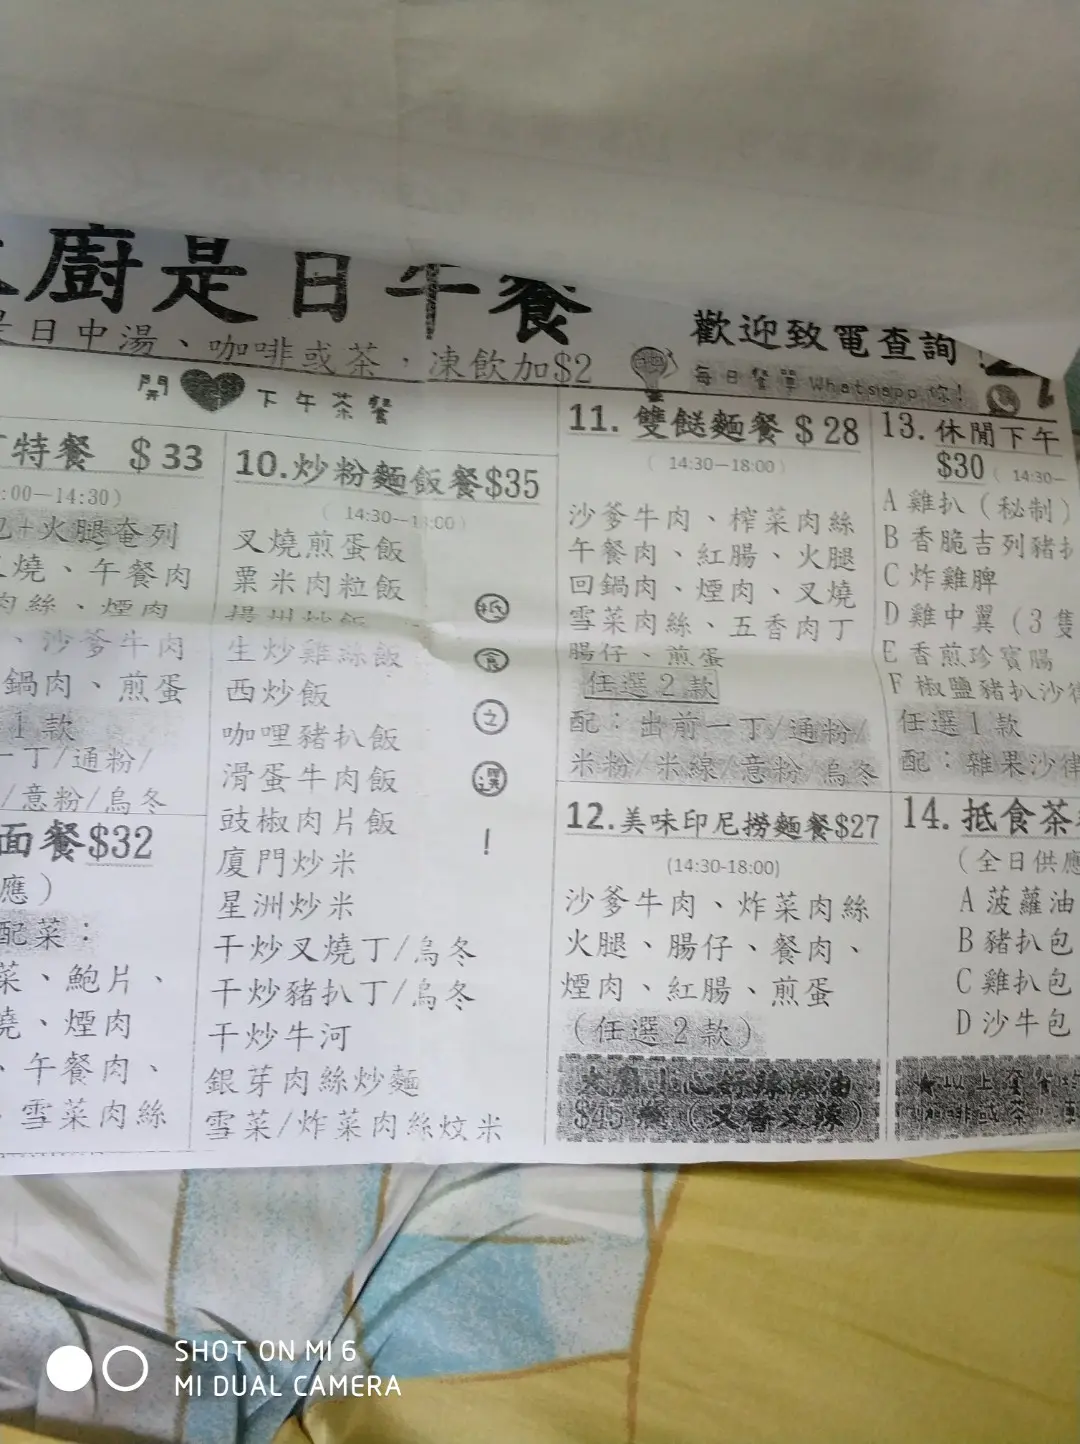 廚是日午餐
是日中湯、咖啡或茶，凍飲加$2
歡迎致電查詢！
每日餐單Whatsapp你！
開 下午茶餐
特餐 $33
:00—14:30)
+火腿奄列
燒、午餐肉
肉絲、煙肉
、沙爹牛肉
鍋肉、煎蛋
1款
一丁/通粉/
/意粉/烏冬
面餐$32
應）
配菜：
菜、鮑片、
燒、煙肉
、午餐肉、
雪菜肉絲
10.炒粉麵飯餐$35
(14:30—18:00)
叉燒煎蛋飯
粟米肉粒飯
揚州炒飯
生炒雞絲飯
西炒飯
咖哩豬扒飯
滑蛋牛肉飯
豉椒肉片飯
廈門炒米
星洲炒米
干炒叉燒丁/烏冬
干炒豬扒丁/烏冬
干炒牛河
銀芽肉絲炒麵
雪菜/炸菜肉絲炆米
抵
食
之
選
！
11. 雙餸麵餐 $28
(14:30—18:00)
沙爹牛肉、榨菜肉絲
午餐肉、紅腸、火腿
回鍋肉、煙肉、叉燒
雪菜肉絲、五香肉丁
腸仔、煎蛋
任選2款
配：出前一丁/通粉/
米粉/米線/意粉/烏冬
12.美味印尼撈麵餐$27
(14:30-18:00)
沙爹牛肉、炸菜肉絲
火腿、腸仔、餐肉、
煙肉、紅腸、煎蛋
(任選2款)
$45 (又香又辣)
13.休閒下午
$30 (14:30—
A雞扒(秘制)
B香脆吉列豬扒
C炸雞脾
D雞中翼(3隻
E香煎珍寶腸
F椒鹽豬扒沙律
任選1款
配：雜果沙律
14. 抵食茶
(全日供應
A菠蘿油
B豬扒包
C雞扒包
D沙牛包
★以上套餐均
咖啡或茶，凍
SHOT ON MI 6
MI DUAL CAMERA